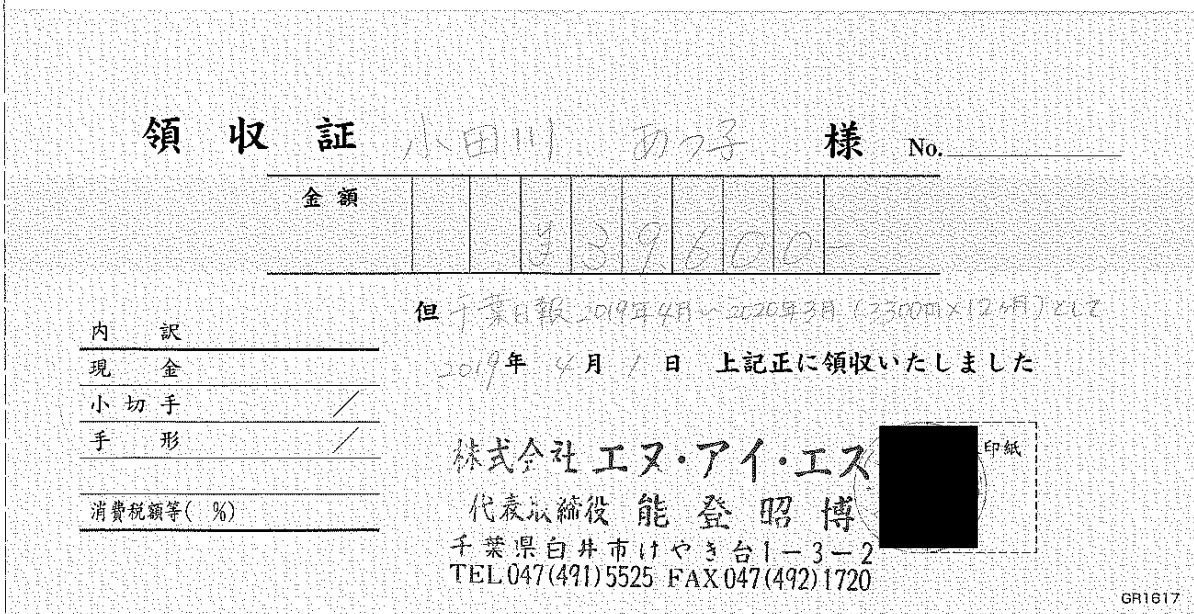 領収証 小田川 あつ子 様 No.
金額 ¥39600-
但 千葉日報 2019年4月~2020年3月(3300円×12ヶ月)として
2019年 4月 1日 上記正に領収いたしました
内訳
現金
小切手 /
手形 /
消費税額等( %)
株式会社 エヌ・アイ・エス
代表取締役 能登昭博
印紙
千葉県白井市けやき台1-3-2
TEL 047(491)5525 FAX 047(492)1720
GR1617